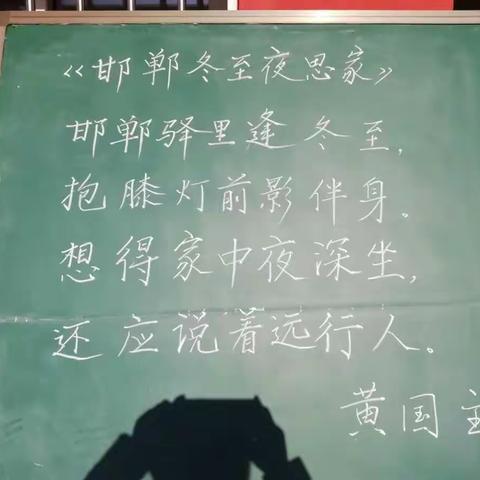 《邯郸冬至夜思家》
邯郸驿里逢冬至,
抱膝灯前影伴身。
想得家中夜深坐,
还应说着远行人。
黄国